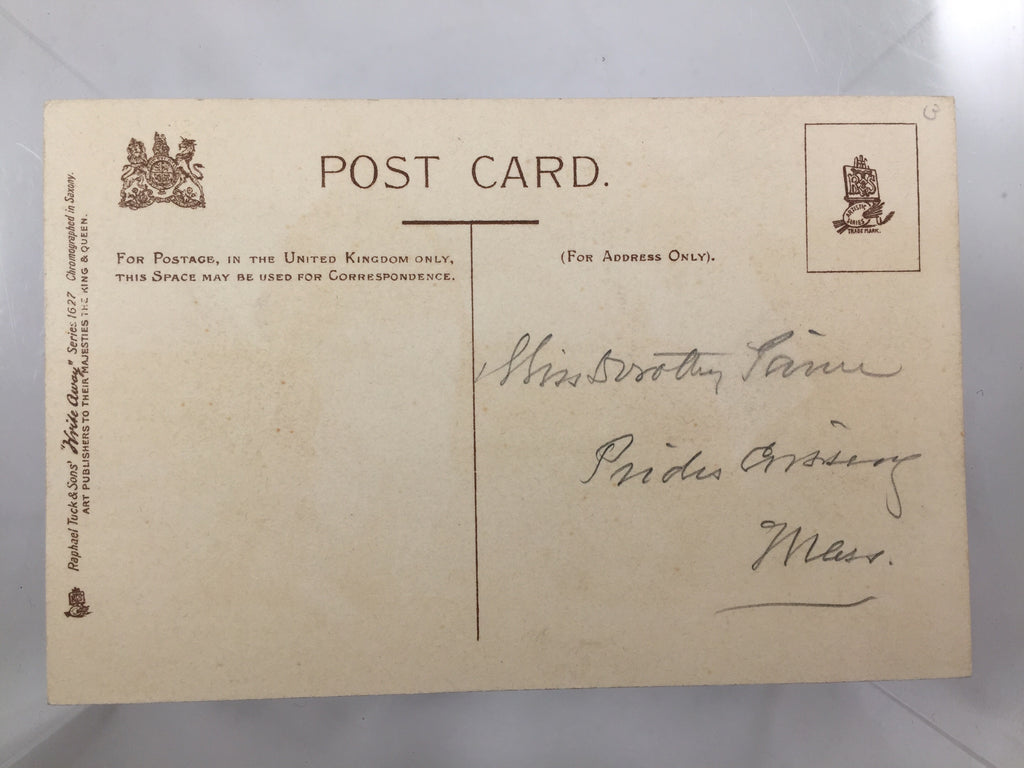 POST CARD.
FOR POSTAGE, IN THE UNITED KINGDOM ONLY,
THIS SPACE MAY BE USED FOR CORRESPONDENCE.
(FOR ADDRESS ONLY).
ARTISTIC
SERIES
TRADE MARK.
3
Miss Dorothy
Prides Crossing
Mass.
Raphael Tuck & Sons' "Write Away" Series 1627 Chromographed in Saxony.
ART PUBLISHERS TO THEIR MAJESTIES THE KING & QUEEN.